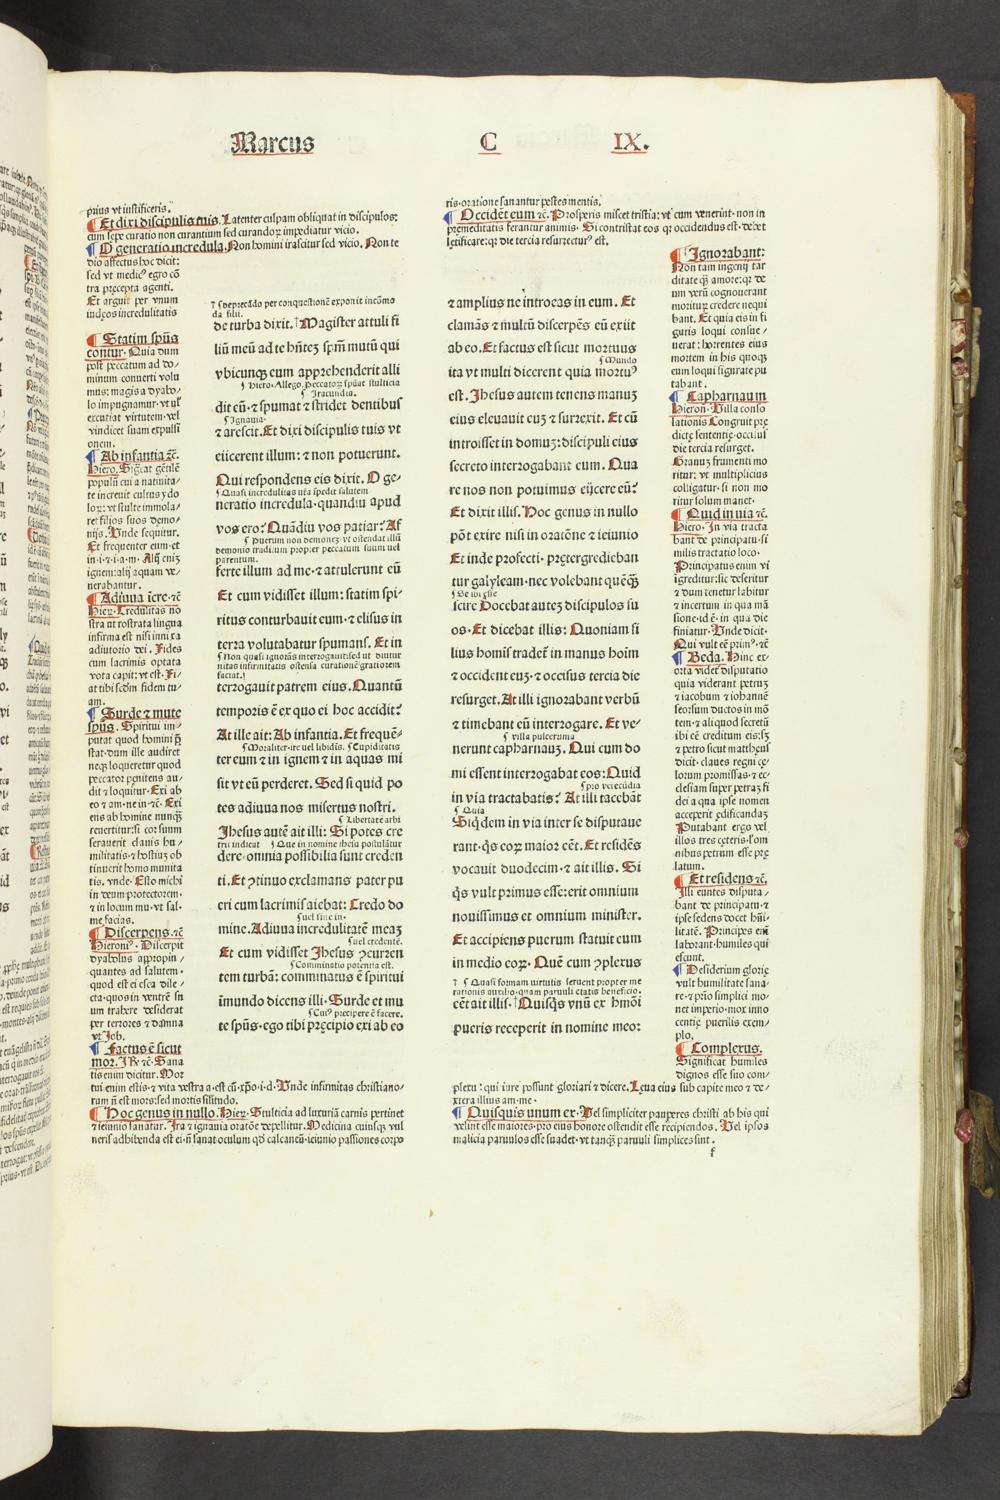 Marcus C IX.
prius vt iustificeris.
Et dixi discipulis tuis. Latenter culpam obliquat in discipulos:
cum sepe curatio non curantium sed curandoꝝ impediatur vicio.
O generatio incredula. Non homini irascitur sed vicio. Non te
dio affectus hoc dicit:
sed vt medicꝰ egro cō
tra precepta agenti.
Et arguit per vnum
iudeos incredulitatis
Statim spūs
contur. Quia dum
post peccatum ad do/
minum conuerti volu
mus: magis a dyabo/
lo impugnamur. vt vl
excutiat virtutem. vel
vindicet suam expulsi
onem.
Ab infantia ꝛc̄.
Hiero. Sigcat gētilē
populū cui a natiuita/
te increuit cultus ydo
loꝝ: vt stulte immola/
ret filios suos demo/
nijs. Vnde sequitur.
Et frequenter eum. et
in. i. ⁊ i. a. m. Alij eniꝫ
ignem: alij aquam ve/
nerabantur.
Adiuua īcre. ꝛc̄
Hier. Credulitas no
stra ut rostrata lingua
infirma est nisi inni xa
adiutorio dei. Fides
cum lacrimis optata
vota capit: vt est. Fi/
at tibi scdm fidem tu/
am.
Surde ⁊ mute
spūs. Spiritui im/
putat quod homini p̄
stat. dum ille audiret
neqꝫ loqueretur quod
peccator penitens au/
dit ⁊ loquitur. Exi ab
eo ⁊ am. ne in. ꝛc̄. Exi
ens ab homine nunqꝫ
reuertitur: si cor suum
serauerit clauis hu/
militatis. ⁊ hostiuꝫ ob
tinuerit homo munita
tis. vnde. Esto michi
in deum protectorem.
⁊ in locum mu. vt sal.
me facias.
Discerpens. ꝛc̄
Hieroniꝰ. Discerpit
dyabolus appropin/
quantes ad salutem.
quod est ei esca dile/
cta. quos in ventrē sn
um trahere desiderat
per terrores ⁊ damna
vt Job.
Factus ē sicut
mor. ꝛc̄. Sana
tis enim dicitur. Mor
tui enim estis. ⁊ vita vestra a. est cū. xp̄o. i. d. Vnde infirmitas christiano/
rum n̄ est mors: sed mortis silitudo.
Hoc genus in nullo. Hier. Stulticia ad luxuriā carnis pertinet
⁊ ieiunio sanatur. Ira ⁊ ignauia oratōe expellitur. Medicina cuiusqꝫ vul
neris adhibenda est ei. n̄ sanat oculum qd calcaneū. ieiunio passiones corpo
deprecādo per conquestionē exponit incōmo
da filij.
de turba dixit. Magister attuli fi
liū meū ad te hn̄teꝫ spm̄ mutū qui
vbicunqꝫ eum apprehenderit alli
Hiero. Allego. Peccatoꝝ spūat stulticia
Iracundia.
dit eū. ⁊ spumat ⁊ stridet dentibus
Ignauia.
⁊ arescit. Et dixi discipulis tuis vt
eiicerent illum: ⁊ non potuerunt.
Qui respondens eis dixit. O ge.
Quasi incredulitas vr̄a īpedit salutem
neratio incredula. quandiu apud
vos ero? Quādiu vos patiar? Af
puerum non demoneꝫ. vt ostendat illū
demonio traditum propter peccatum suum uel
parentum.
ferte illum ad me. ⁊ attulerunt eū
Et cum vidisset illum: statim spi/
ritus conturbauit eum. ⁊ elisus in
terra volutabatur spumans. Et in
Non quasi ignorās interrogauit: sed ut diutur
nitas infirmitatis ostensa curationē gratiorem
faciat.
terrogauit patrem eius. Quantū
temporis ē ex quo ei hoc accidit?
At ille ait: Ab infantia. Et frequē=
Moraliter. ire uel libidis. Cupiditatis
ter eum ⁊ in ignem ⁊ in aquas mi
sit vt eū perderet. Sed si quid po
tes adiuua nos misertus nostri.
Libertatē arbi
Jhesus autē ait illi: Si potes cre
trij indicat Que in nomine ihesu postulātur
dere. omnia possibilia sunt creden
ti. Et ꝯtinuo exclamans pater pu
eri cum lacrimis aiebat: Credo do
mine. Adiuua incredulitatē meaꝫ
Et cum vidisset Jhesus ꝯcurren
Comminatio potentia est.
tem turbā: comminatus ē spiritui
īmundo dicens illi. Surde et mu
Cuiꝰ precipere ē facere.
te spūs. ego tibi precipio exi ab eo
ris. oratione sanantur pestes mentis.
Occidēt eum ꝛc̄. Prosperis miscet tristia: vt cum venerint. non in
premeditatis ferantur animis. Si contristat eos qꝛ occidendus est. debet
letificare: qꝛ die tercia resurrecturꝰ est.
⁊ amplius ne introeas in eum. Et
clamās ⁊ multū discerpēs eū exiit
ab eo. Et factus est sicut mortuus
Mundo
ita vt multi dicerent quia mortuꝰ
est. Jhesus autem tenens manuꝫ
eius eleuauit euꝫ ⁊ surrexit. Et cū
introisset in domuꝫ: discipuli eius
secreto interrogabant eum. Qua
re nos non potuimus eijcere eū?
Et dixit illis. Hoc genus in nullo
pōt exire nisi in oratōne ⁊ ieiunio
Et inde profecti. pretergrediebant
tur galyleam. nec volebant quēqꝫ
scire Docebat auteꝫ discipulos su
os. Et dicebat illis: Quoniam fi
lius homis tradet̄ in manus hoim̄
⁊ occident euꝫ. ⁊ occisus tercia die
resurget. At illi ignorabant verbū
⁊ timebant eū interrogare. Et ve/
villa pulcerrima
nerunt capharnauꝫ. Qui cum do
mi essent interrogabat eos: Quid
pro verecūdia
in via tractabatis? At illi tacebāt
Quia
Siqdem in via inter se disputaue
rant. qs eoꝝ maior eēt. Et residēs
vocauit duodecim. ⁊ ait illis. Si
qs vult primus esse: erit omnium
nouissimus et omnium minister.
Et accipiens puerum statuit eum
in medio eoꝝ. Quē cum ꝯplexus
Quasi formam uirtutis seruent propter me
eēt ait illis. Quisqs vnū ex hmōi
pueris receperit in nomine meo:
Ignorabant:
Non tam ingenij tar
ditate qꝫ amore: qꝛ de
um verū cognouerant
moriturꝫ credere nequi
bant. Et quia eis in fi
guris loqui consue/
uerat: horrentes eius
mortem in his quoqꝫ
eum loqui figurate pu
tabant.
Capharnaum
Hieron. Villa conso
lationis Congruit pre
dicte sententie. occisus
die tercia resurget.
Granuꝫ frumenti mo
ritur: vt multiplicius
colligatur. si non mo
ritur solum manet.
Quid in via ꝛc̄.
Hiero. In via tracta
bant de principatu. si
milis tractatio loco.
Principatus enim vt
īgreditur: sic deseritur
⁊ dum tenetur labitur
⁊ incertum in qua mā
sione. id ē. in qua die
finiatur. Vnde dicit.
Qui vult eē primꝰ. ꝛc̄
Beda. Hinc ex/
orta videt disputatio
quia viderant petruꝫ
⁊ iacobum ⁊ iohannē
seorsum ductos in mō
tem. ⁊ aliquod secretū
ibi eē creditum eis: sꝫ
⁊ petro sicut mattheus
dicit. claues regni ce/
lorum promissas. ⁊ ec/
clesiam super petraꝫ fi
dei a qua ipse nomen
acceperit edificandaꝫ
Putabant ergo vel
illos tres ceteris. l' om
nibus petrum esse pre
latum.
Et residens ꝛc̄.
Illi euntes disputa/
bant de principatu. ⁊
ipse sedens docet hūi/
litatē. Principes em̄
laborant. humiles qui
escunt.
Desiderium glorie
vult humilitate sana/
re. ⁊ p̄rio simplici mo/
net imperio. mox inno
centie puerilis exem/
plo.
Complexus.
Significat humiles
dignos esse suo com/
plexu: qui iure possunt gloriari ⁊ dicere. Leua eius sub capite meo ⁊ de/
xtera illius am. me.
Quisquis unum ex. Vel simpliciter pauperes christi ab his qui
velint esse maiores. pro eius honore ostendit esse recipiendos. Vel ipsos
malicia paruulos esse suadet. vt tanqꝫ paruuli simplices sint.
f